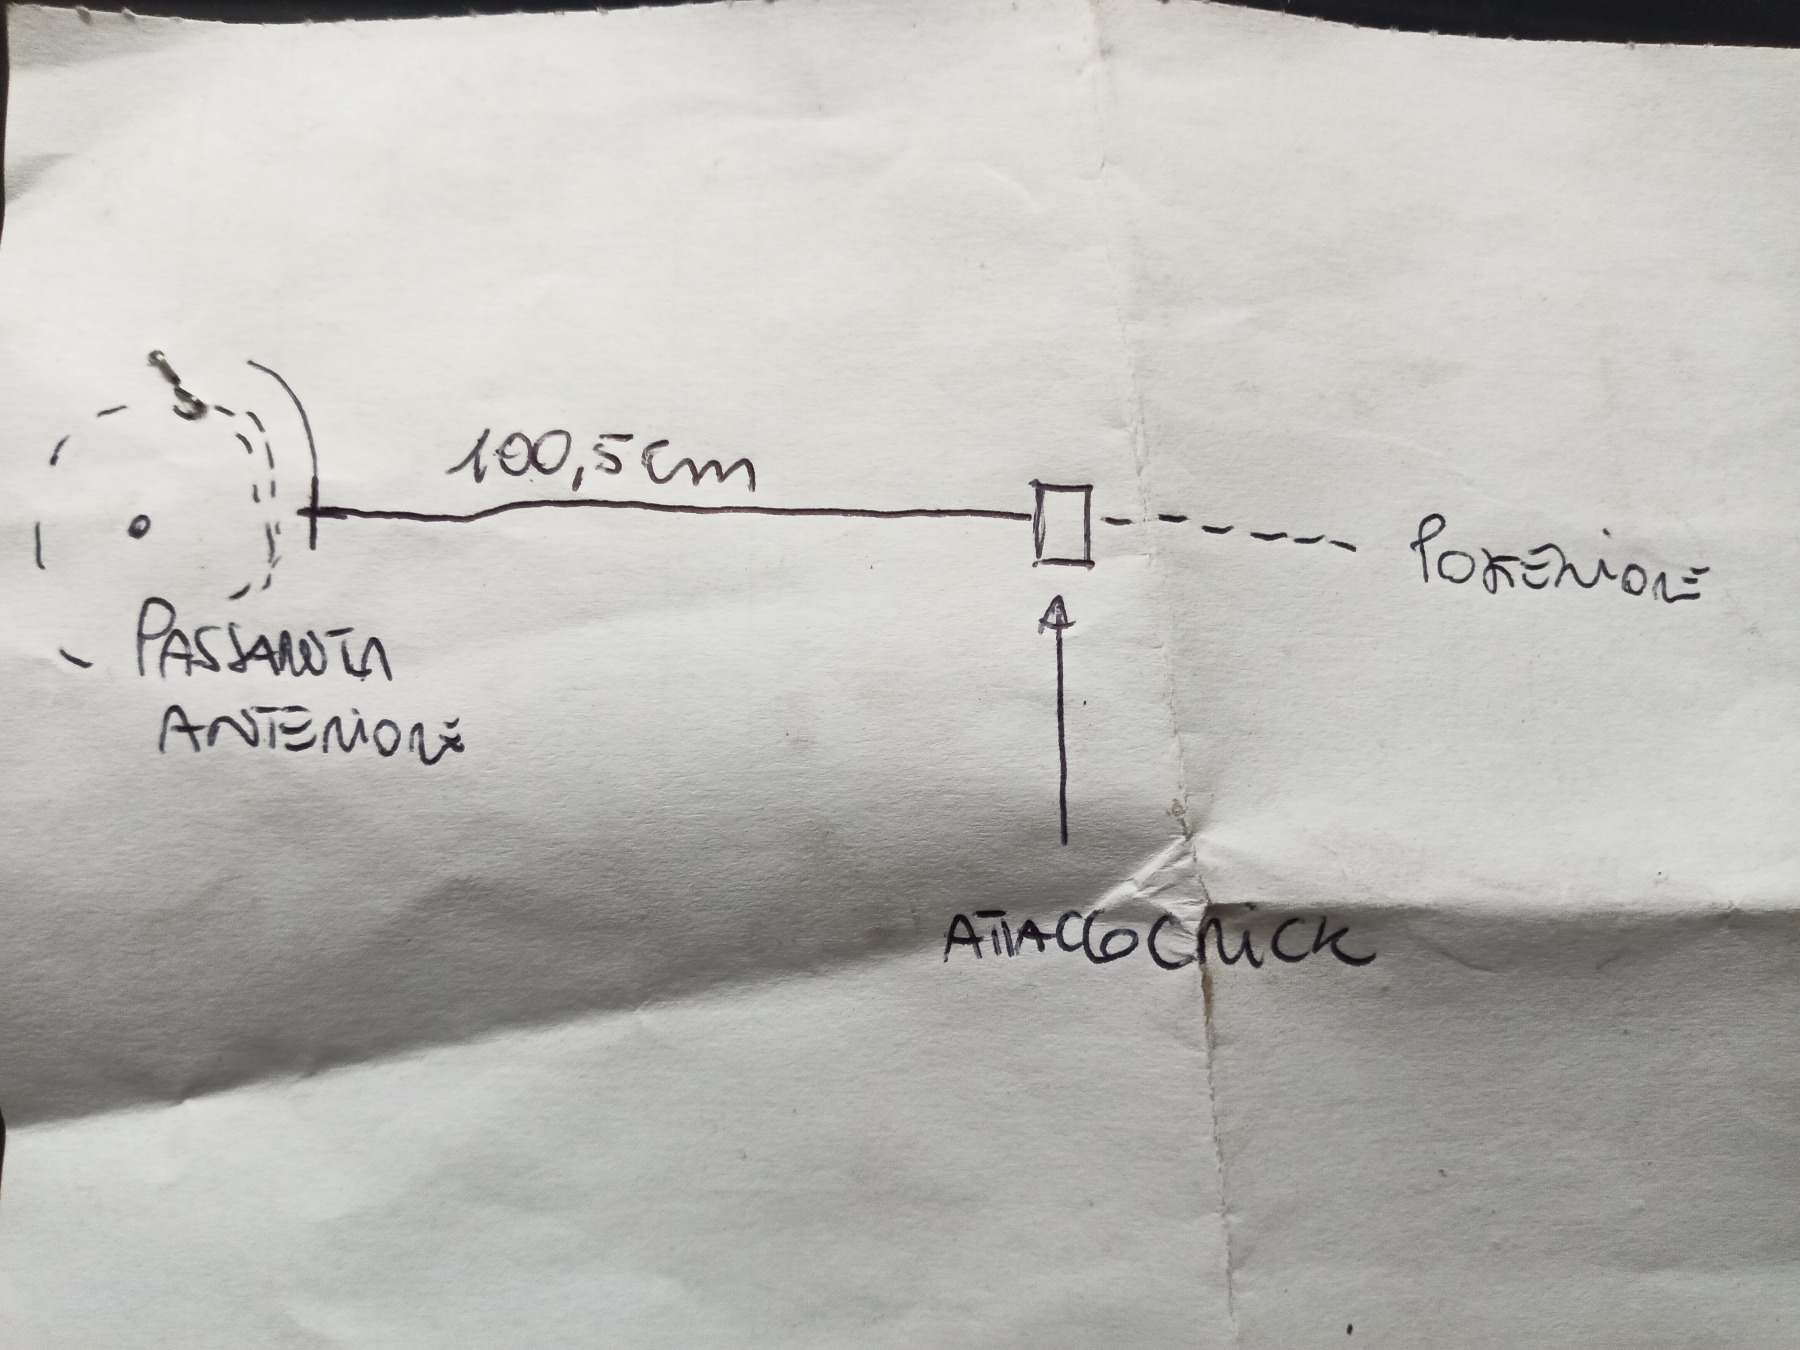 100,5 cm
POSTERIORE
PASSARUOTA
ANTERIORE
ATTACCO CRICK